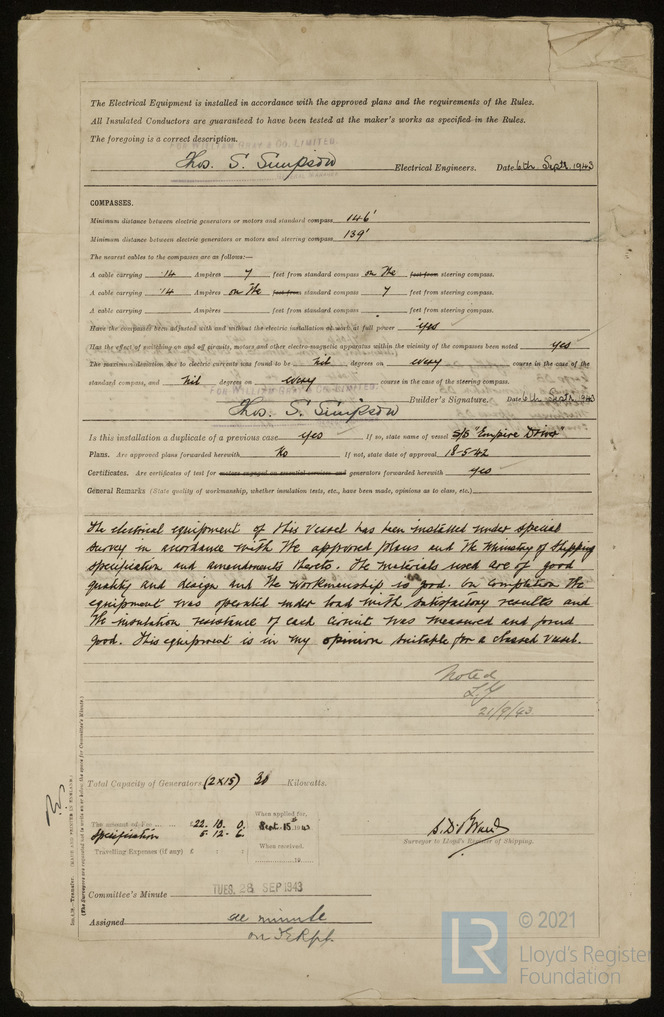 The Electrical Equipment is installed in accordance with the approved plans and the requirements of the Rules.
All Insulated Conductors are guaranteed to have been tested at the maker's works as specified in the Rules.
The foregoing is a correct description.
FOR WILLIAM GRAY & CO. LIMITED.
Thos. S. Simpson Electrical Engineers. Date 6th Septr. 1943
COMPASSES.
Minimum distance between electric generators or motors and standard compass 146'
Minimum distance between electric generators or motors and steering compass 139'
The nearest cables to the compasses are as follows:—
A cable carrying .14 Ampères 7 feet from standard compass on the feet from steering compass.
A cable carrying .14 Ampères on the feet from standard compass 7 feet from steering compass.
A cable carrying Ampères feet from standard compass feet from steering compass.
Have the compasses been adjusted with and without the electric installation at work at full power yes
Has the effect of switching on and off circuits, motors and other electro-magnetic apparatus within the vicinity of the compasses been noted yes
The maximum deviation due to electric currents was found to be nil degrees on every course in the case of the
standard compass, and nil degrees on every course in the case of the steering compass.
FOR WILLIAM GRAY & CO. LIMITED.
Thos. S. Simpson Builder's Signature. Date 6th Septr. 1943
Is this installation a duplicate of a previous case yes If so, state name of vessel S/S "Empire
Plans. Are approved plans forwarded herewith No If not, state date of approval 18-5-42
Certificates. Are certificates of test for motors engaged on essential services and generators forwarded herewith yes
General Remarks (State quality of workmanship, whether insulation tests, etc., have been made, opinions as to class, etc.)
The electrical equipment of this vessel has been installed under special
survey in accordance with the approved plans and the Ministry of Shipping
specification and amendments thereto. The materials used are of good
quality and design and the workmanship is good. On completion the
equipment was operated under load with satisfactory results and
the insulation resistance of each circuit was measured and found
good. This equipment is in my opinion suitable for a classed vessel.
Noted
21/9/43
Total Capacity of Generators (2 x 15) 30 Kilowatts.
The amount of Fee £22 . 10 . 0. When applied for, Sept. 15th 1943
Specification 5 . 12 . 6.
Travelling Expenses (if any) £ : : When received, 19
Surveyor to Lloyd's Register of Shipping.
Committee's Minute TUES. 28 SEP 1943
Assigned see minute
on
(MADE AND PRINTED IN ENGLAND.)
(The Surveyors are requested not to write on or below the space for Committee's Minute.)
LR
© 2021
Lloyd's Register
Foundation